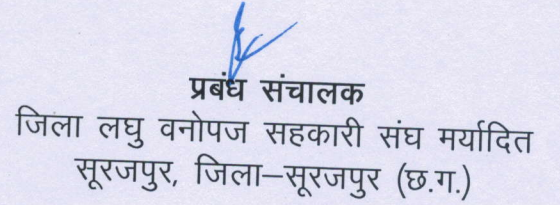 प्रबंध संचालक
जिला लघु वनोपज सहकारी संघ मर्यादित
सूरजपुर, जिला–सूरजपुर (छ.ग.)